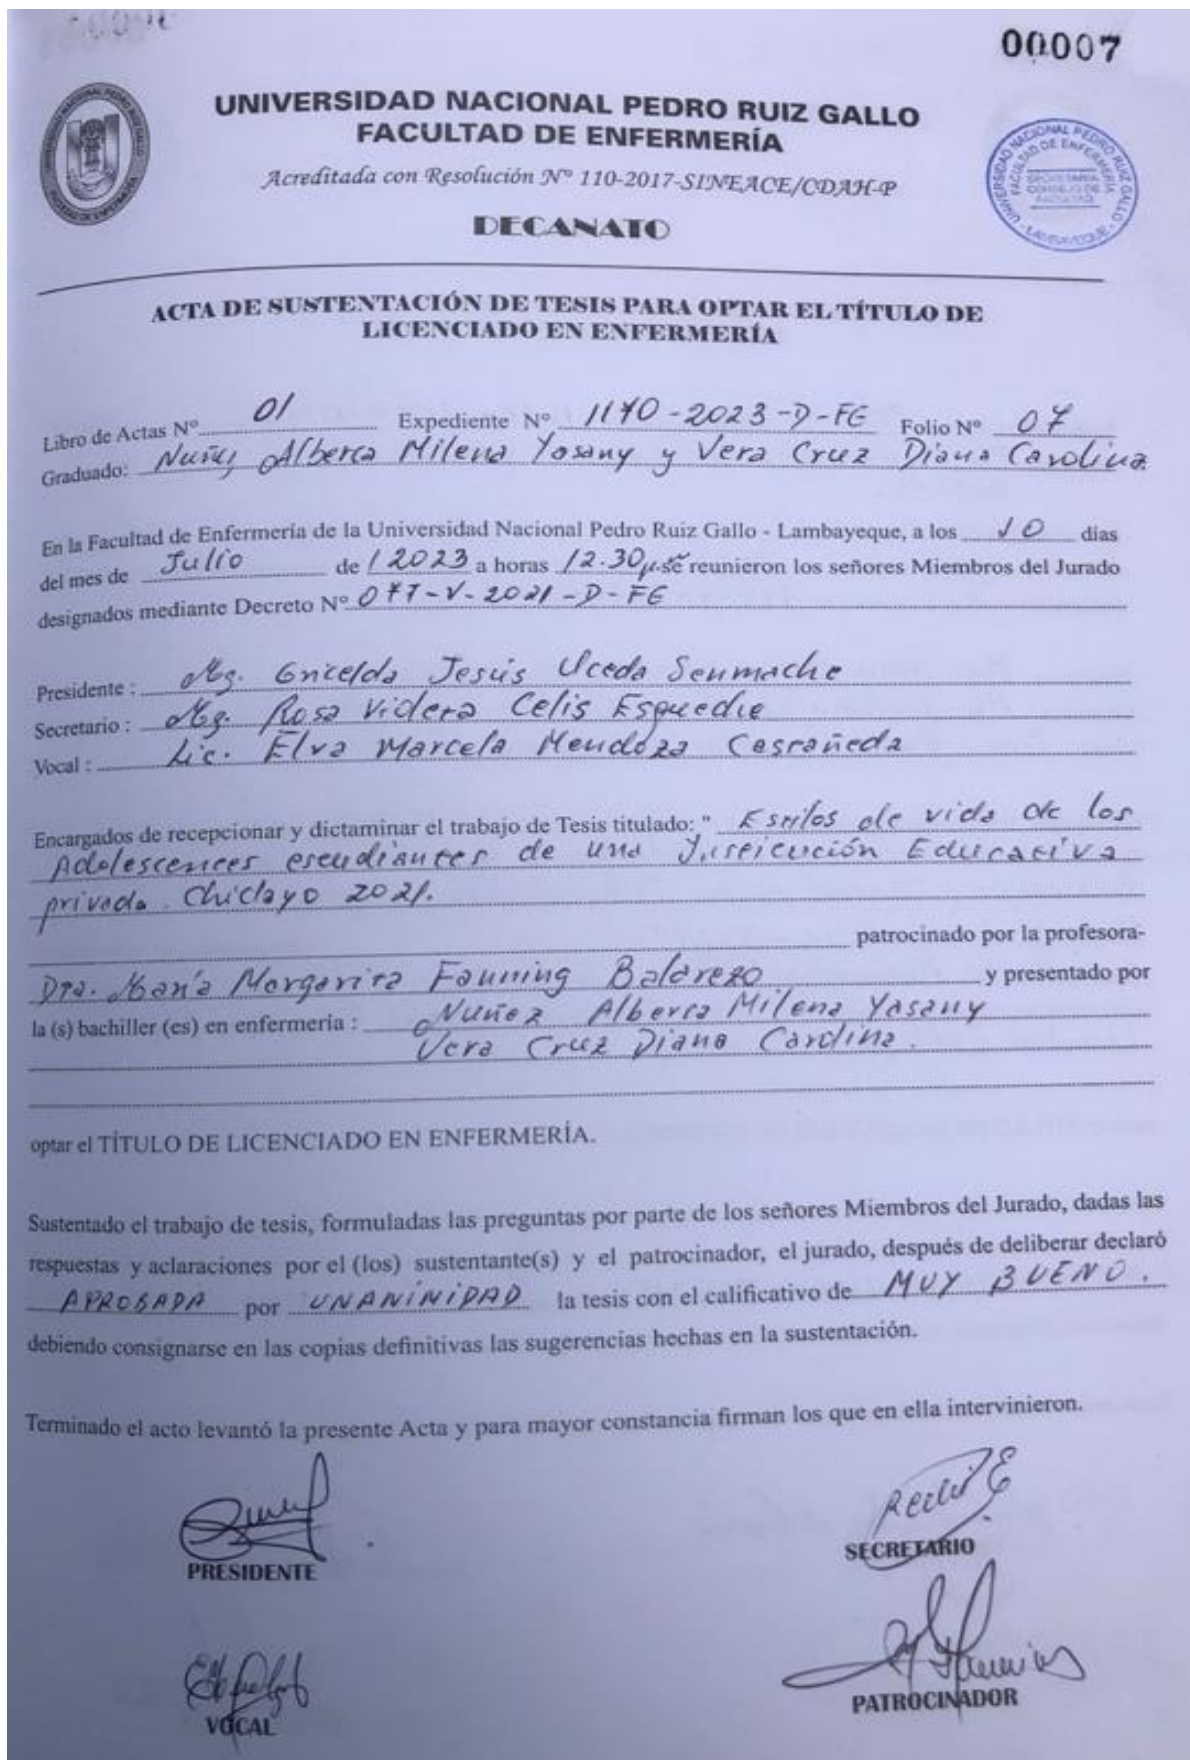 00007
UNIVERSIDAD NACIONAL PEDRO RUIZ GALLO
FACULTAD DE ENFERMERÍA
Acreditada con Resolución Nº 110-2017-SINEACE/CDAH-P
DECANATO
UNIVERSIDAD NACIONAL PEDRO RUIZ GALLO
FACULTAD DE ENFERMERÍA
SECRETARIA
CONSEJO DE
FACULTAD
- LAMBAYEQUE -
ACTA DE SUSTENTACIÓN DE TESIS PARA OPTAR EL TÍTULO DE
LICENCIADO EN ENFERMERÍA
Libro de Actas Nº 01 Expediente Nº 1170-2023-D-FE Folio Nº 07
Graduado: Nuñez Alberca Milena Yosany y Vera Cruz Diana Carolina
En la Facultad de Enfermería de la Universidad Nacional Pedro Ruiz Gallo - Lambayeque, a los 10 dias
del mes de Julio de / 2023 a horas 12.30 se reunieron los señores Miembros del Jurado
designados mediante Decreto Nº 077-V-2021-D-FE
Presidente : Mg. Gricelda Jesús Uceda Senmache
Secretario : Mg. Rosa Videra Celis Esqueche
Vocal : Lic. Elva Marcela Mendoza Castañeda
Encargados de recepcionar y dictaminar el trabajo de Tesis titulado: " Estilos de vida de los
Adolescentes estudiantes de una Institución Educativa
privada. Chiclayo 2021.
patrocinado por la profesora-
Dra. María Margarita Fanning Balarezo y presentado por
la (s) bachiller (es) en enfermería : Nuñez Alberca Milena Yasany
Vera Cruz Diana Carolina.
optar el TÍTULO DE LICENCIADO EN ENFERMERÍA.
Sustentado el trabajo de tesis, formuladas las preguntas por parte de los señores Miembros del Jurado, dadas las
respuestas y aclaraciones por el (los) sustentante(s) y el patrocinador, el jurado, después de deliberar declaró
APROBADA por UNANINIDAD la tesis con el calificativo de MUY BUENO.
debiendo consignarse en las copias definitivas las sugerencias hechas en la sustentación.
Terminado el acto levantó la presente Acta y para mayor constancia firman los que en ella intervinieron.
PRESIDENTE
SECRETARIO
VOCAL
PATROCINADOR